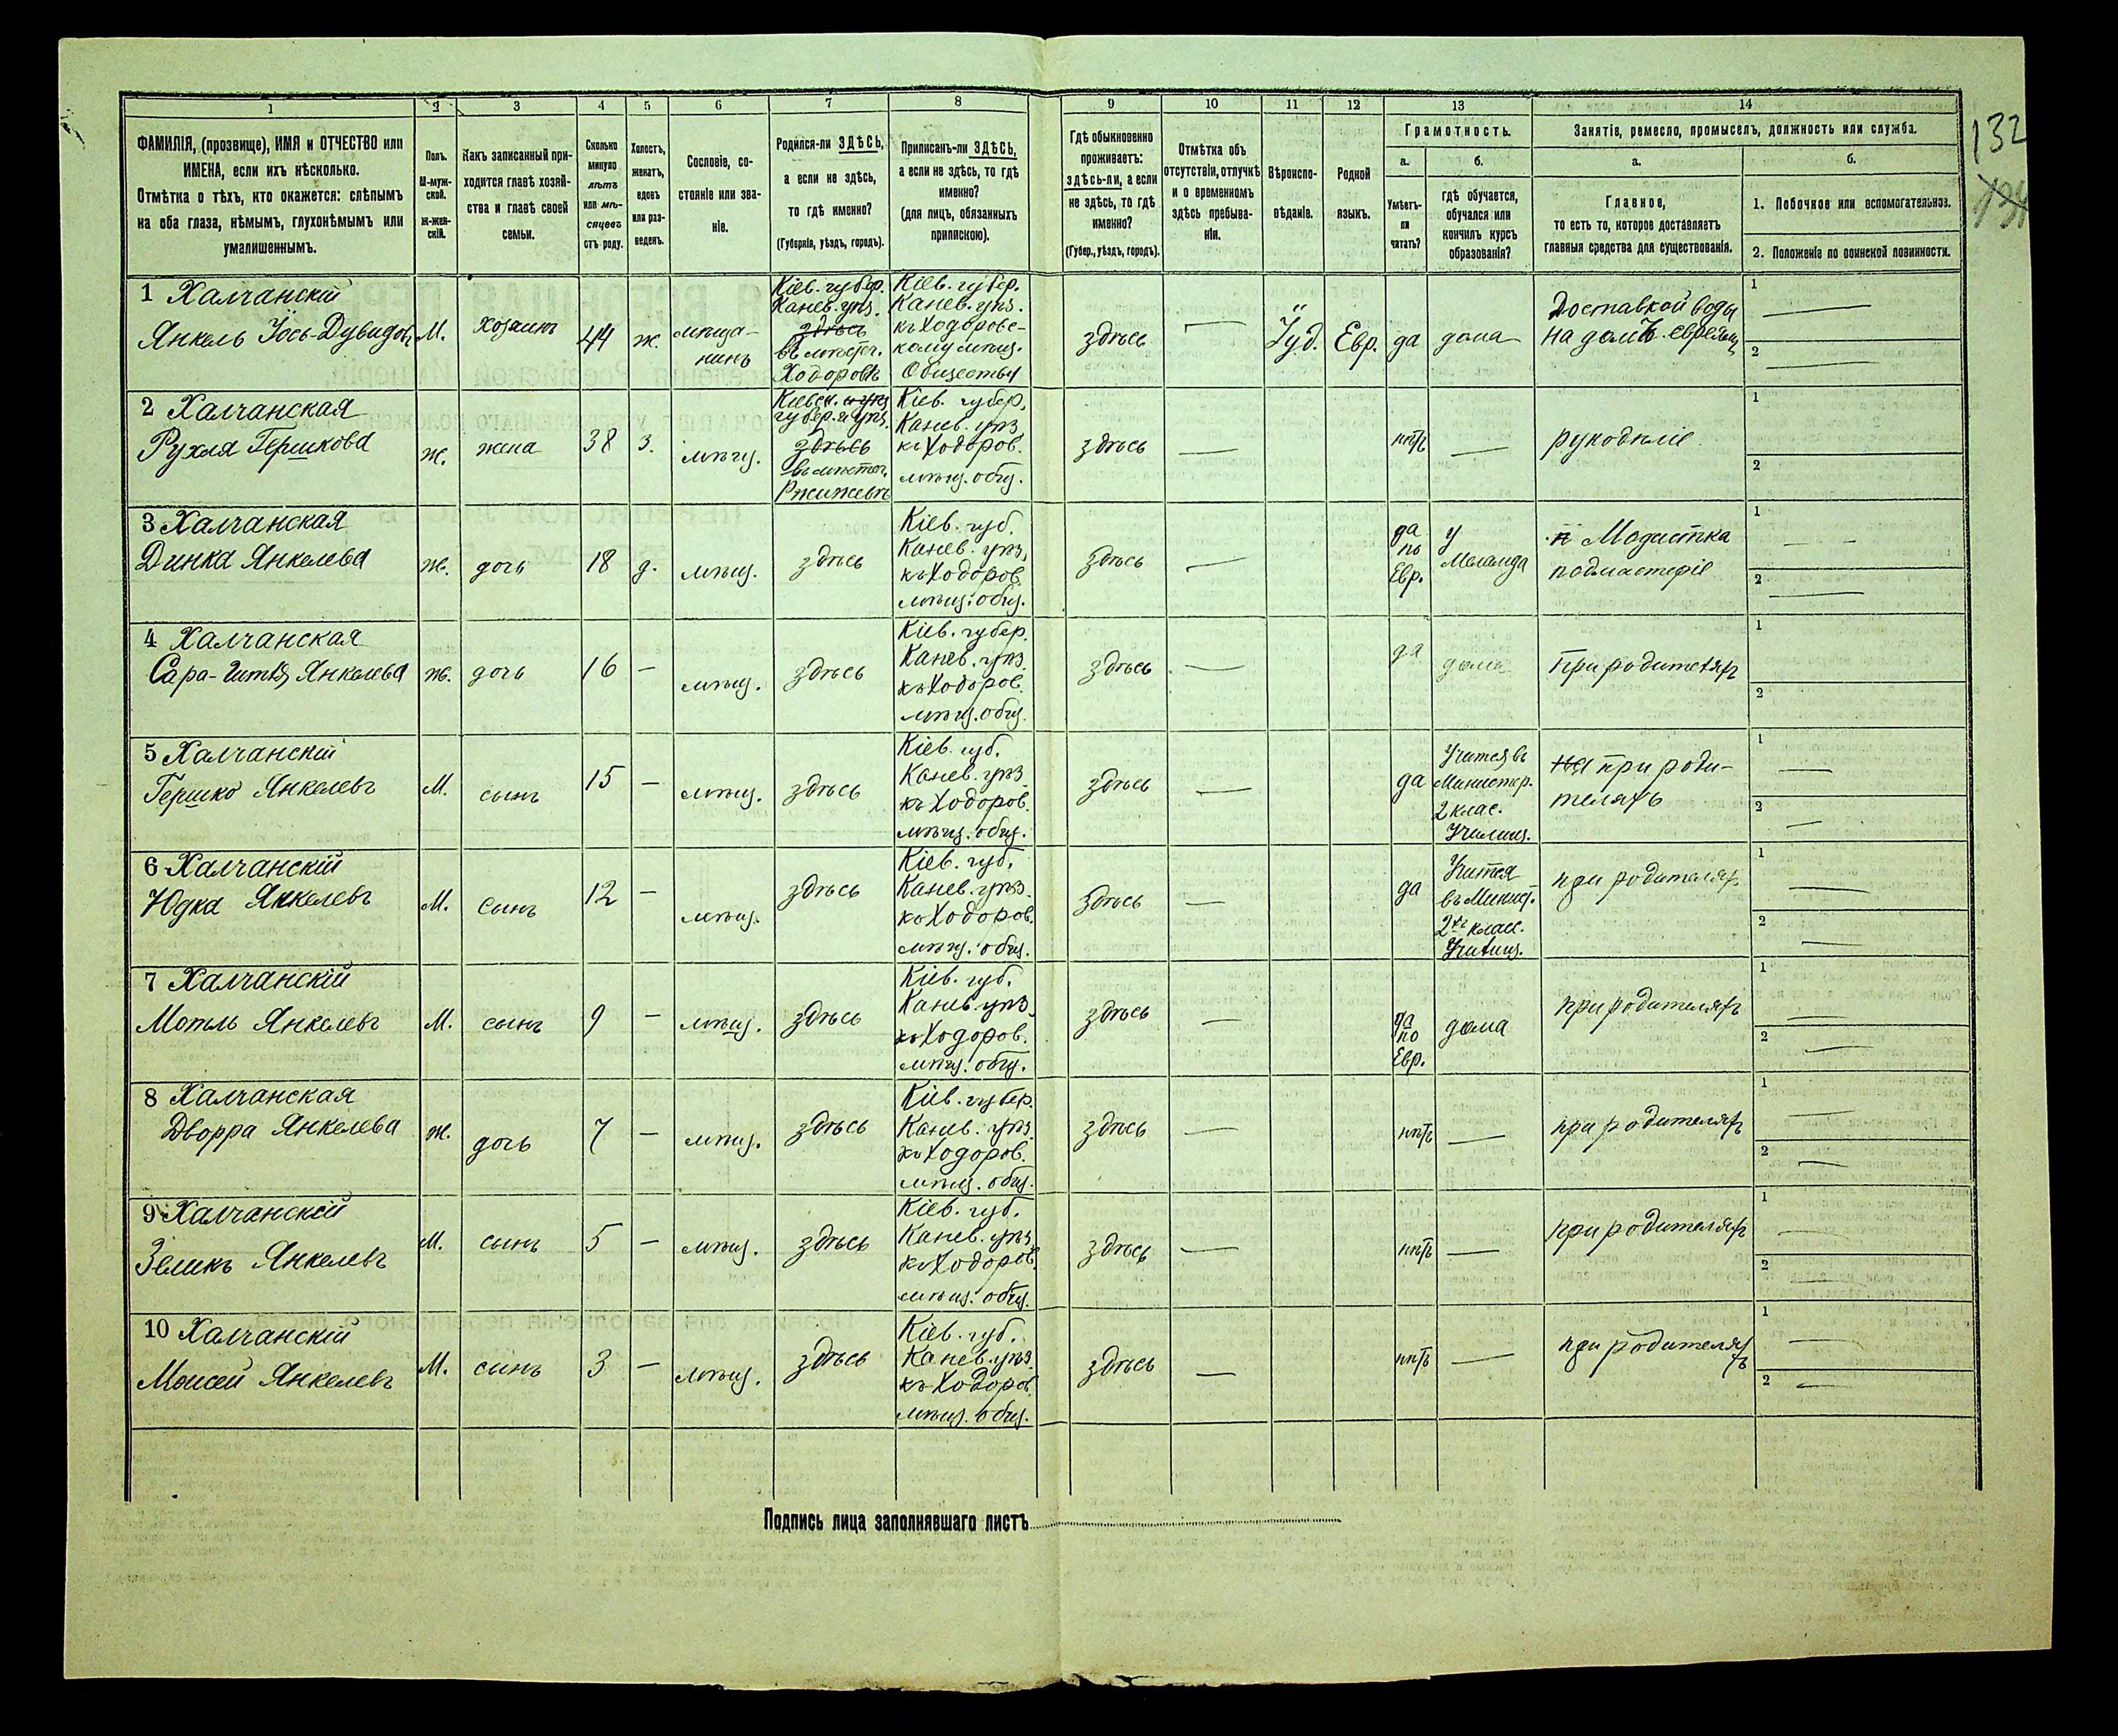 1 2 3 4 5 6 7 8 9 10 11 12 13 14
ФАМИЛІЯ, (прозвище), ИМЯ и ОТЧЕСТВО или
ИМЕНА, если ихъ нѣсколько.
Отмѣтка о тѣхъ, кто окажется: слѣпымъ
на оба глаза, нѣмымъ, глухонѣмымъ или
умалишеннымъ.
Полъ.
М-муж-
ской.
Ж-жен-
скій.
Какъ записанный при-
ходится главѣ хозяй-
ства и главѣ своей
семьи.
Сколько
минуло
лѣтъ
или мѣ-
сяцевъ
отъ роду.
Холостъ,
женатъ,
вдовъ
или раз-
веденъ.
Сословіе, со-
стояніе или зва-
ніе.
Родился-ли ЗДѢСЬ,
а если не здѣсь,
то гдѣ именно?
(Губернія, уѣздъ, городъ).
Приписанъ-ли ЗДѢСЬ,
а если не здѣсь, то гдѣ
именно?
(для лицъ, обязанныхъ
припискою).
Гдѣ обыкновенно
проживаетъ:
здѣсь-ли, а если
не здѣсь, то гдѣ
именно?
(Губер., уѣздъ, городъ).
Отмѣтка объ
отсутствіи, отлучкѣ
и о временномъ
здѣсь пребыва-
ніи.
Вѣроиспо-
вѣданіе.
Родной
языкъ.
Грамотность.
а.
Умѣетъ-
ли
читать?
б.
гдѣ обучается,
обучался или
кончилъ курсъ
образованія?
Занятіе, ремесло, промыселъ, должность или служба.
а.
Главное,
то есть то, которое доставляетъ
главныя средства для существованія.
б.
1. Побочное или вспомогательное.
2. Положеніе по воинской повинности.
132
1 Халчанскій
Янкель Іось-Дувидовъ
М.
хозяинъ
44
ж.
мѣща-
нинъ
Кіев. губер.
Канев. уѣз.
здѣсь
въ мѣстеч.
Ходоровѣ
Кіев. губер.
Канев. уѣз.
къ Ходоровс-
кому мѣщ.
Обществу
здѣсь
—
Іуд.
Евр.
да
дома
Доставкой воды
на домъ. евреямъ
1 —
2 —
2 Халчанская
Рухля Гершкова
ж.
жена
38
з.
мѣщ.
Кіевск. и уѣз
губер. и уѣз.
здѣсь
въ мѣстеч.
Ржищевѣ
Кіев. губер.
Канев. уѣз
къ Ходоров.
мѣщ. общ.
здѣсь
—
нѣтъ
—
рукодѣліе
1
2
3 Халчанская
Динка Янкелева
ж.
дочь
18
д.
мѣщ.
здѣсь
Кіев. губ.
Канев. уѣз.
къ Ходоров.
мѣщ. общ.
здѣсь
—
да
по
Евр.
у
Меламда
Модистка
подмастеріе
1 —
2 —
4 Халчанская
Сара-Гитля Янкелева
ж.
дочь
16
—
мѣщ.
здѣсь
Кіев. губер.
Канев. уѣз.
къ Ходоров.
мѣщ. общ.
здѣсь
—
да
дома
При родителяхъ
1
2
5 Халчанскій
Гершко Янкелевъ
М.
сынъ
15
—
мѣщ.
здѣсь
Кіев. губ.
Канев. уѣз
къ Ходоров.
мѣщ. общ.
здѣсь
—
да
Учится въ
Министер.
2 клас.
Училищ.
при роди-
теляхъ
1 —
2 —
6 Халчанскій
Юдка Янкелевъ
М.
Сынъ
12
—
мѣщ.
здѣсь
Кіев. губ.
Канев. уѣз.
къ Ходоров.
мѣщ. общ.
здѣсь
—
да
Учится
въ Минист.
2хъ класс.
Училищ.
при родителяхъ
1 —
2 —
7 Халчанскій
Мотль Янкелевъ
М.
сынъ
9
—
мѣщ.
здѣсь
Кіев. губ.
Канев. уѣз.
къ Ходоров.
мѣщ. общ.
здѣсь
—
да
по
Евр.
дома
при родителяхъ
1 —
2 —
8 Халчанская
Дворра Янкелева
ж.
дочь
7
—
мѣщ.
здѣсь
Кіев. губер.
Канев. уѣз.
къ Ходоров.
мѣщ. общ.
здѣсь
—
нѣтъ
—
при родителяхъ
1 —
2 —
9 Халчанскій
Зеликъ Янкелевъ
М.
сынъ
5
—
мѣщ.
здѣсь
Кіев. губ.
Канев. уѣз.
къ Ходоров.
мѣщ. общ.
здѣсь
—
нѣтъ
—
при родителяхъ
1 —
2 —
10 Халчанскій
Моисей Янкелевъ
М.
сынъ
3
—
мѣщ.
здѣсь
Кіев. губ.
Канев. уѣз.
къ Ходоров.
мѣщ. общ.
здѣсь
—
нѣтъ
—
при родителяхъ
1 —
2 —
Подпись лица заполнявшаго листъ